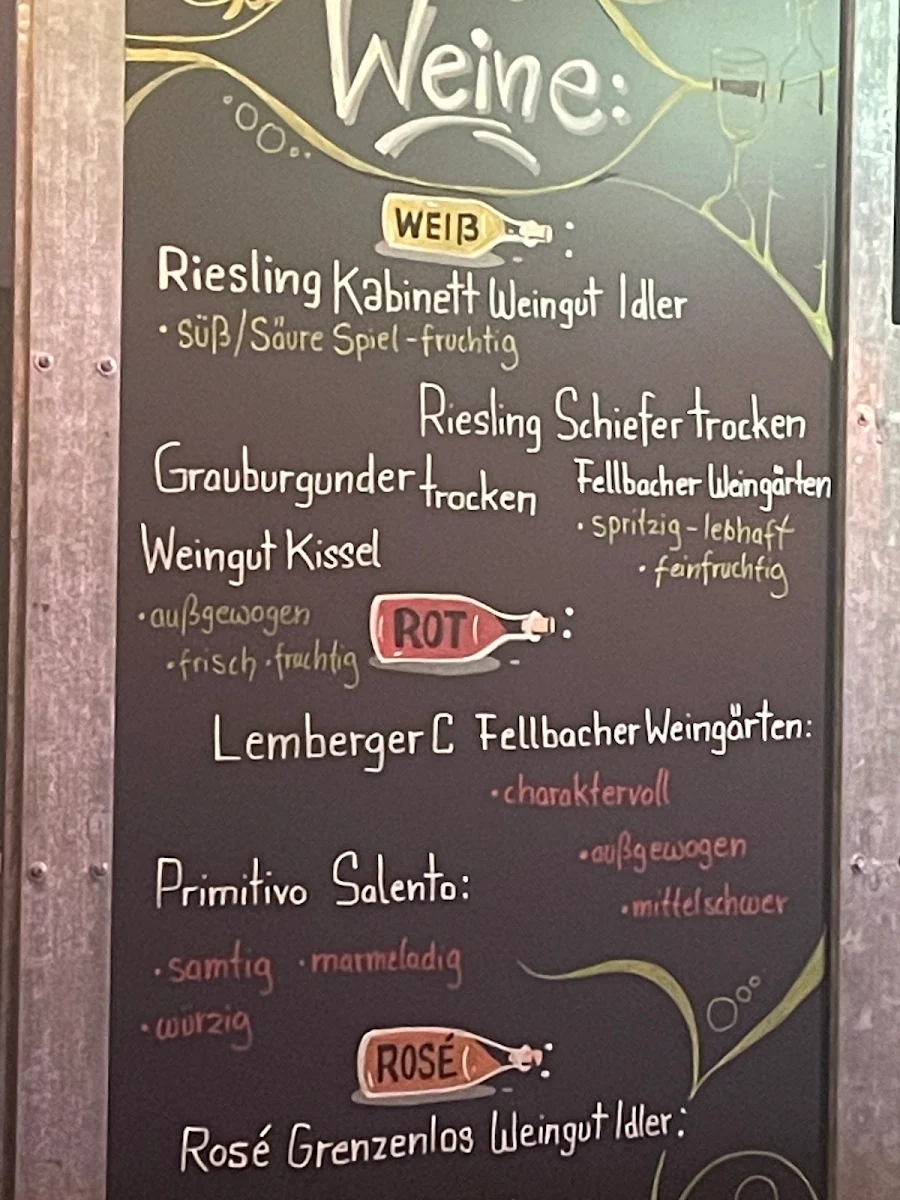 Weine:
WEIß
Riesling Kabinett Weingut Idler
• süß/Säure Spiel - fruchtig
Riesling Schiefer trocken
Fellbacher Weingärten
• spritzig - lebhaft
• feinfruchtig
Grauburgunder trocken
Weingut Kissel
• außgewogen
• frisch • fruchtig
ROT
Lemberger C Fellbacher Weingärten:
• charaktervoll
• außgewogen
• mittelschwer
Primitivo Salento:
• samtig • marmeladig
• würzig
ROSÉ
Rosé Grenzenlos Weingut Idler: